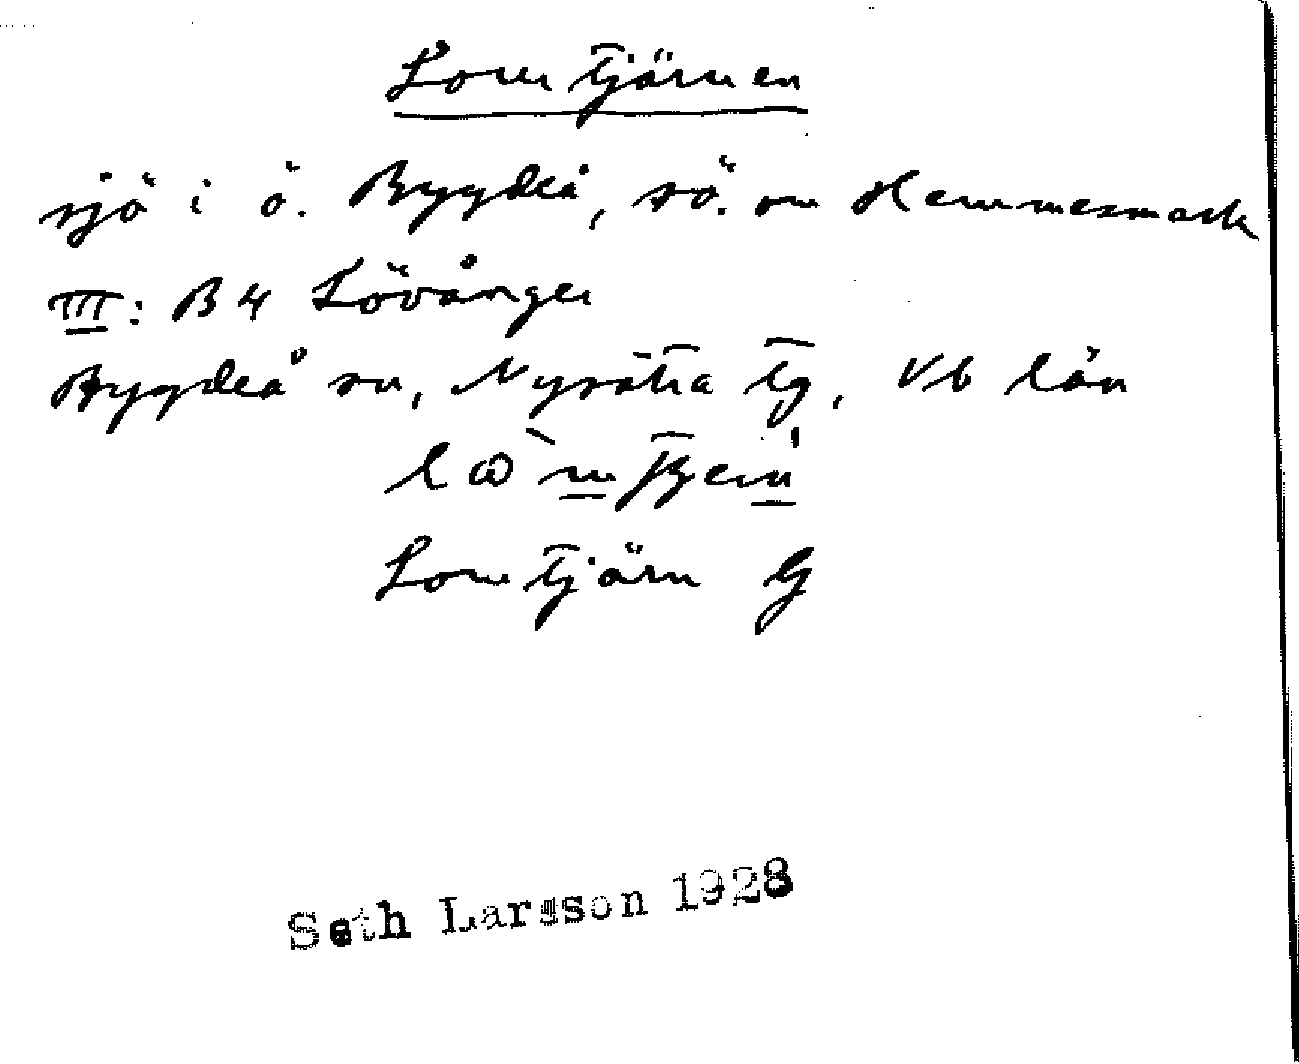 Lomtjärnen
sjö i ö. Bygdeå, sö. om Hemmesmark
III: B 4 Lövånger
Bygdeå sn, Nysätra tg, Vb län
Lomtjärn G
Seth Larsson 1928